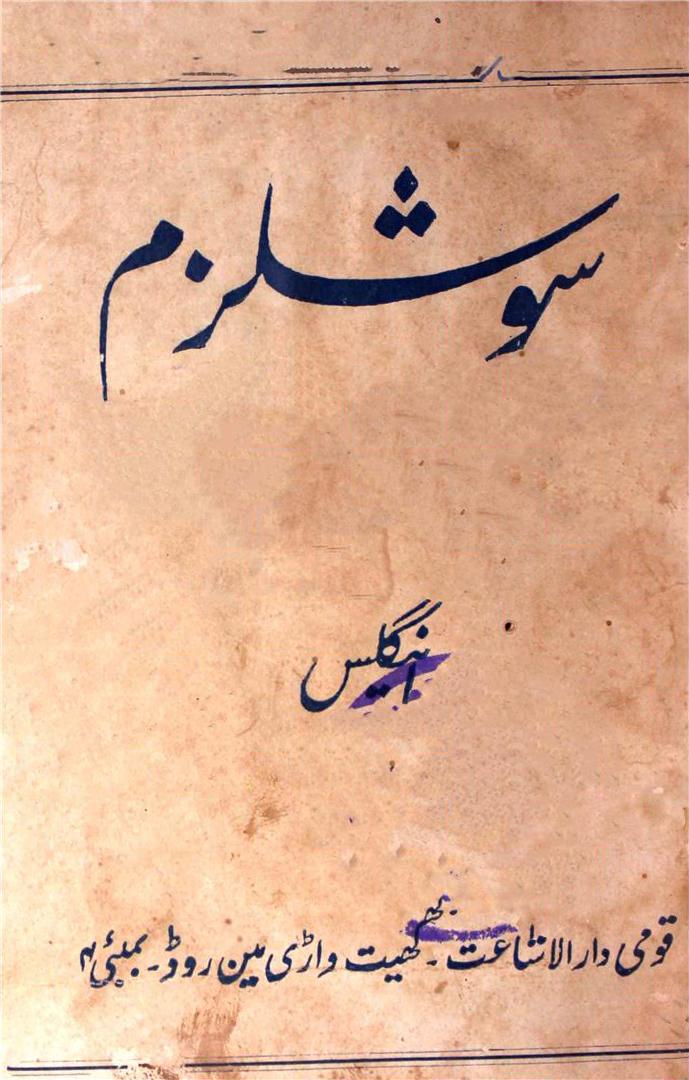 سوشلزم
اینگلس
قومی دارالاشاعت۔ کھیت واڑی مین روڈ۔ بمبئی ۴